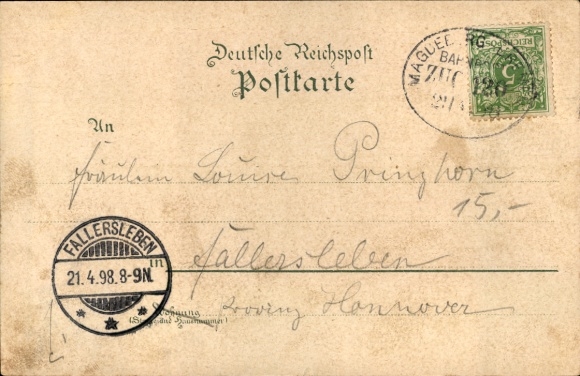 Deutsche Reichspost
Postkarte
MAGDEB RG
BAHNP
ZUG 120
REICHSPOST
5
An
Fräulein Louise Pringhorn
15,-
FALLERSLEBEN
21.4.98.8-9N.
in
Fallersleben
Provinz Hannover
Wohnung
(Straße und Hausnummer)